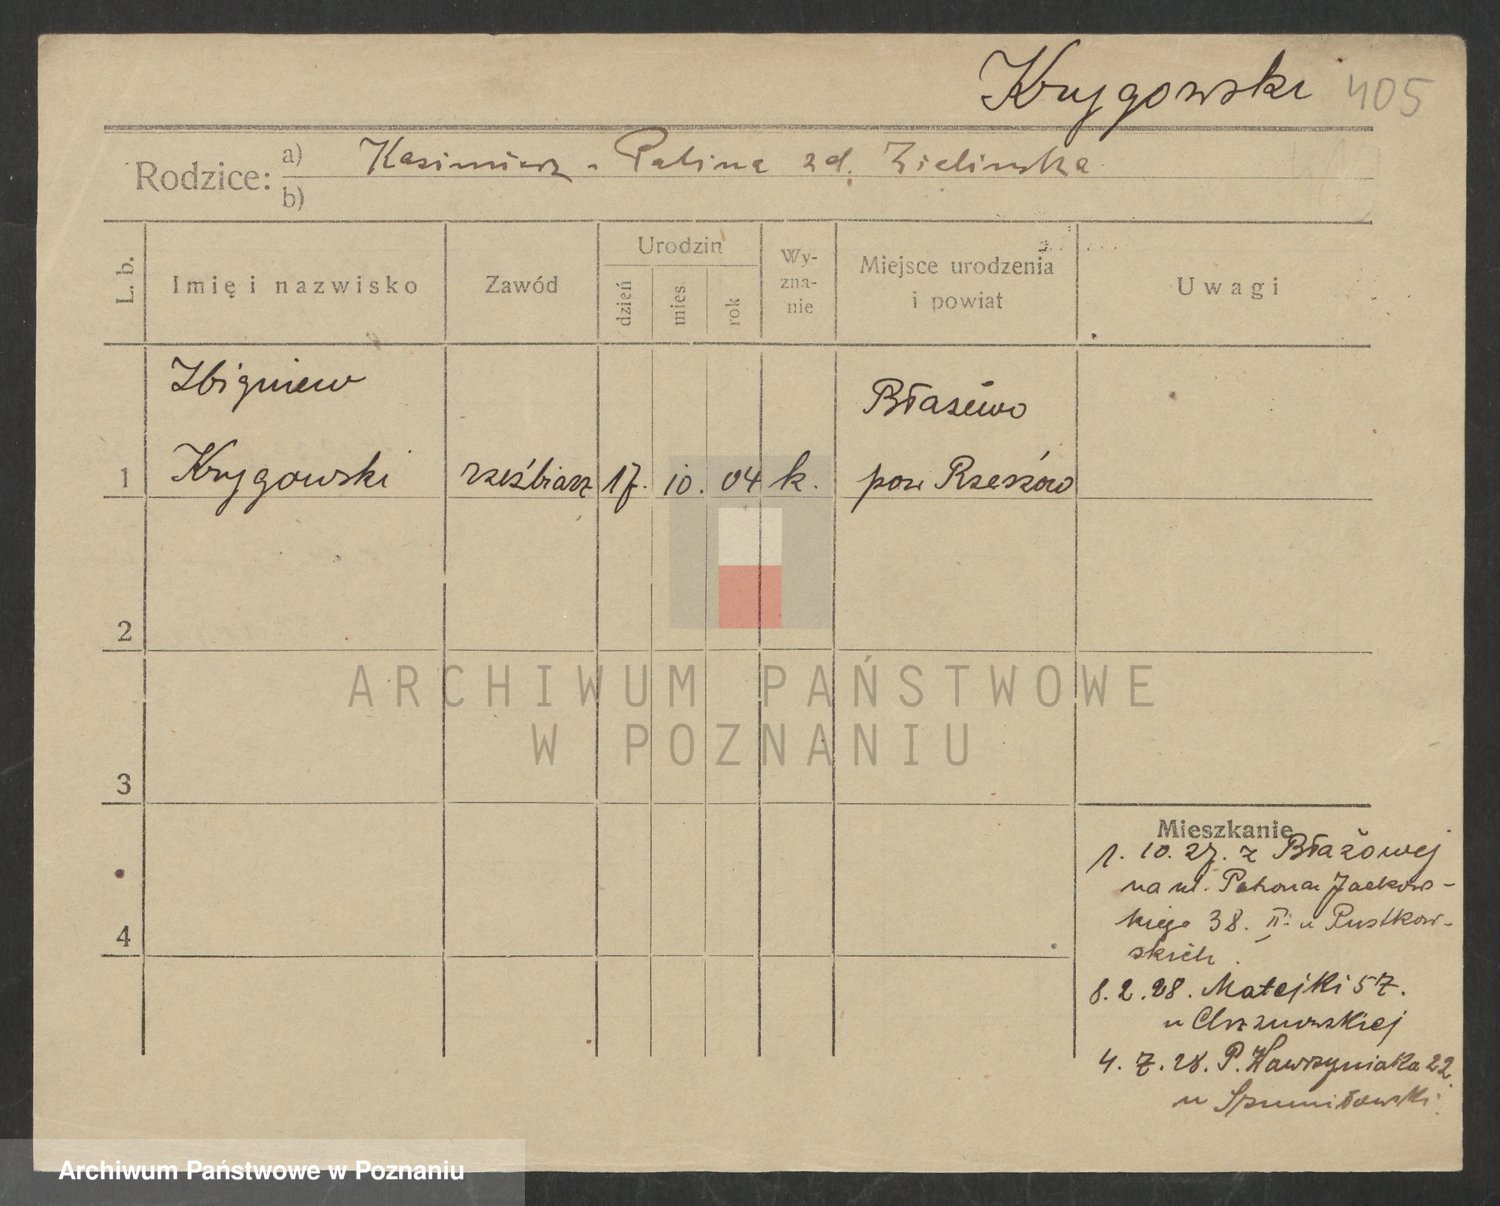 Krygowski 405
Rodzice: a) Kasimierz - Palina zd. Zielinska
b)
L. b.
Imię i nazwisko
Zawód
Urodzin
dzień
mies
rok
Wy-
zna-
nie
Miejsce urodzenia
i powiat
Uwagi
Zbigniew
Błażewo
1 Krygowski rzeźbiarz 17. 10. 04 k. pow Rzeszów
2
ARCHIWUM PAŃSTWOWE
W POZNANIU
3
Mieszkanie
1. 10. 27. z Błażowej
na ul. Patrona Jackow-
4
kiego 38. II. u Rustkow-
skich.
8. 2. 28. Matejki 57.
u Chrzanowskiej
4. 7. 28. P. Wawrzyniaka 22
u
Archiwum Państwowe w Poznaniu